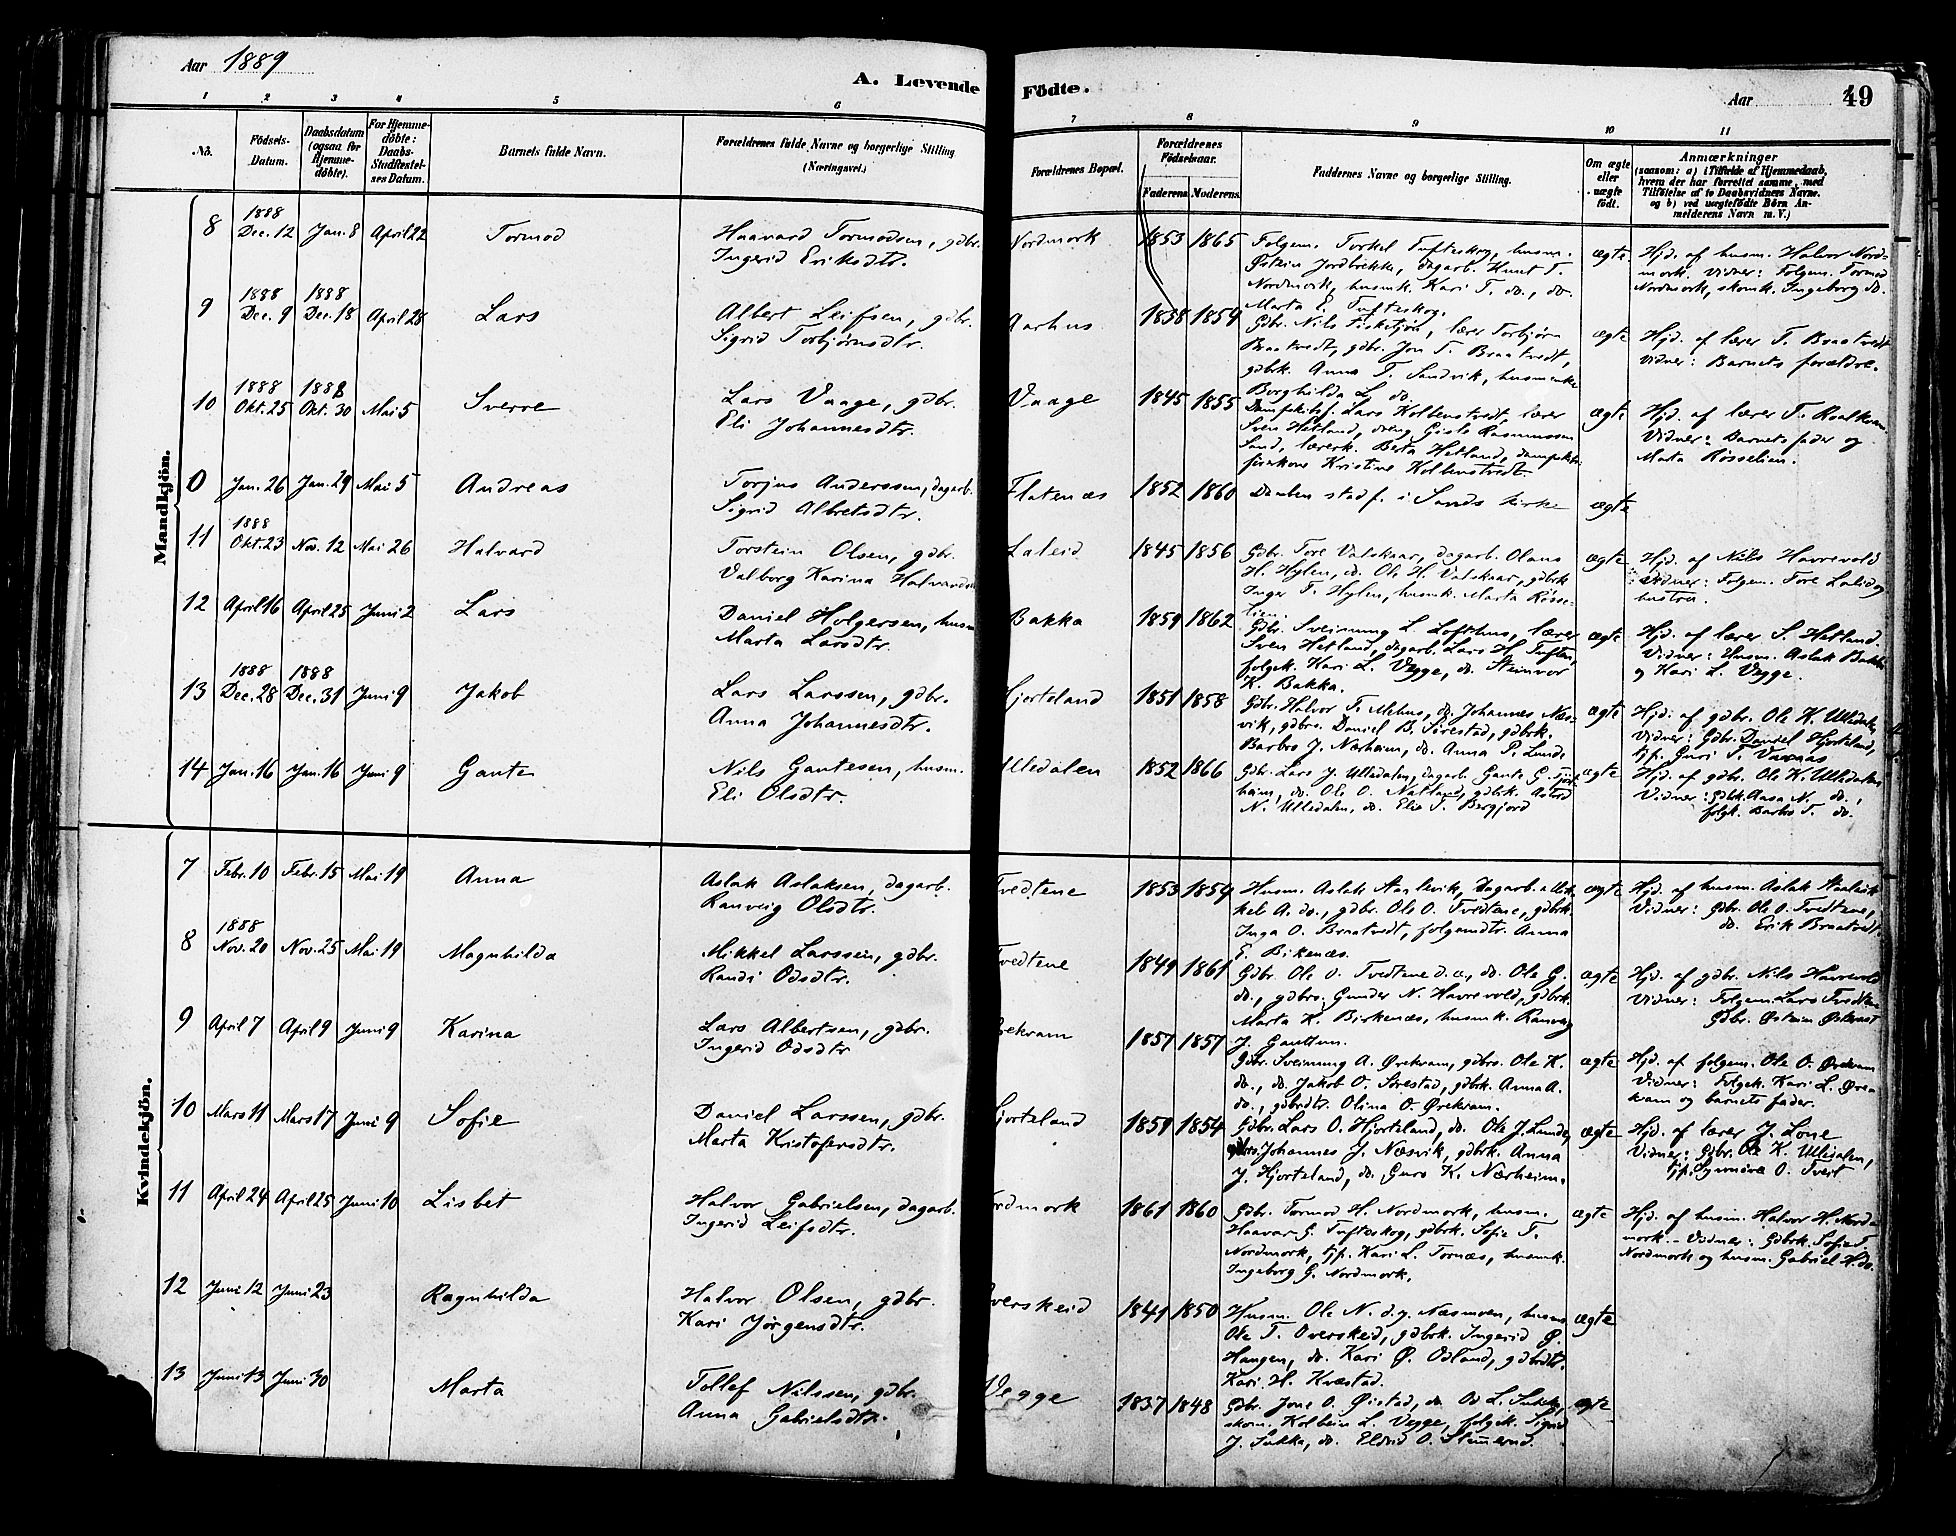 Aar 1889
A. Levende Födte.
Aar 49
1 2 3 4 5 6 7 8 9 10 11
No. Födsels-Datum. Daabsdatum (ogsaa for Hjemmedöbte). For Hjemmedöbte: Daabs-Stadfæstelses Datum. Barnets fulde Navn. Forældrenes fulde Navne og borgerlige Stilling (Næringsvei.) Forældrenes Bopæl. Forældrenes Födselsaar. Faderens Moderens. Faddernes Navne og borgerlige Stilling. Om ægte eller uægte födt. Anmærkninger (saasom: a) i Tilfælde af Hjemmedaab, hvem der har forrettet samme, med Tilföielse af to Daabsvidners Navne. og b) ved uægtefödte Börn Anmelderens Navn m.V.)
Mandkjön.
8 1888 Dec. 12 Jan. 8 April 22 Tormod Haavard Tormodsen, gdbr. Nordmork 1853 1865 Folgem. Torkel Tufteskog, husm. ægte Hjd. af husm. Halvor Nord-
Ingerid Eriksdtr. Østein Jordbrekke, dagarb. Knut T. mork. Vidner: Folgem. Tormod
Nordmork, husmk. Kari T. do., do. Nordmork, skomk. Ingeborg do.
Marta E. Tufteskog.
9 1888 Dec. 9 1888 Dec. 18 April 28 Lars Albert Leifsen, gdbr. Aarhus 1858 1854 Gdbr. Nils Fisketjøn, lærer Torbjørn ægte Hjd. af lærer T. Braatvedt
Sigrid Torbjørnsdtr. Braatvedt, gdbr. Jon T. Braatvedt, Vidner: Barnets forældre.
gdbrk. Anna T. Sandvik, husmenke
Borghilda L. do.
10 1888 Okt. 25 1888 Okt. 30 Mai 5 Sverre Lars Vaage, gdbr. Vaage 1845 1855 Lars Kolbenstvedt, lærer ægte Hjd. af lærer T. Roalkvam
Eli Johannesdtr. Sven Hetland, dreng Gisle Rasmussen Vidner: Barnets fader og
Sand, lærerk. Berta Hetland, Marta Røsselien.
Kristine Kolbenstvedt.
0 Jan. 26 Jan. 29 Mai 5 Andreas Torjus Anderssen, dagarb. Flatenæs 1852 1860 Daaben stadf. i Sands kirke ægte
Sigrid Albretsdtr.
11 1888 Okt. 23 Nov. 12 Mai 26 Halvard Torstein Olsen, gdbr. Laleid 1845 1856 Gdbr. Tore Valskaar, dagarb. Olaus ægte Hjd. af Nils Havrevold
Valborg Karina H. Hylen, do. Ole H. Valskaar, gdbrk. Vidner: Folgem. Tore Laleid og
Inger T. Hylen, husmk. Marta Røsse- hustru.
lien.
12 April 16 April 25 Juni 2 Lars Daniel Holgersen, husm. Bakka 1859 1862 Gdbr. Sveinung L. Lofthus, lærer ægte Hjd. af lærer S. Hetland.
Marta Larsdtr. Sven Hetland, dagarb. Lars H. Tuften, Vidner: Husm. Aslak Bakka
folgek. Kari L. Vegge, do. Steinvor og Kari L. Vegge.
K. Bakka.
13 1888 Dec. 28 1888 Dec. 31 Juni 9 Jakob Lars Larssen, gdbr. Hjorteland 1851 1858 Gdbr. Halvor T. Mehus, do. Johannes Næs- ægte Hjd. af gdbr. Ole K. Ulledalen
Anna Johannesdtr. vik, gdbrs. Daniel B. Sørestad, gdbrk. Vidner: Gdbr. Daniel Hjorteland,
Barbro J. Nærheim, do. Anna P. Lunde tjp. Guri T.
14 Jan. 16 Jan. 16 Juni 9 Gaute Nils Gautesen, husm. Ulledalen 1852 1866 Gdbr. Lars J. Ulledalen, dagarb. Gaute G. ægte Hjd. af gdbr. Ole K. Ulledalen
Eli Olsdtr. do. Ole O. Natland, gdbrk. Vidner: Gdbrk. Aasa N. do.,
N. Ulledalen, do. Eli T. Bergfjord folgk. Barbro T. do.
Kvindekjön.
7 Febr. 10 Febr. 15 Mai 19 Anna Aslak Aslaksen, dagarb. Tvedtene 1853 1854 Husm. Aslak Aarlevik, dagarb. ægte Hjd. af husm. Aslak
Ranveig Olsdtr. A. do., gdbr. Ole O. Tvedtene, gdbrk. Vidner: Gdbr. Ole O. Tvedtene,
Inga O. Braatvedt, folgemdtr. Anna do. Erik Braatvedt.
E. Birkenæs.
8 1888 Nov. 20 Nov. 25 Mai 19 Magnhilda Mikkel Larssen, gdbr. Tvedtene 1849 1861 Gdbr. Ole O. Tvedtene d. æ., do. Ole G. ægte Hjd. af gdbr. Nils Havrevold
Randi Odsdtr. do., gdbrs. Gunder N. Havrevold, gdbrk. Vidner: Folgem. Lars Tvedtene
Marta K. Birkenæs, husmk. Ranveig Gdbr. Østein
J. Gautun.
9 April 7 April 9 Juni 9 Karina Lars Albertsen, gdbr. Ørekvam 1857 1857 Gdbr. Sveinung A. Ørekvam, gdbrs. Ole K. ægte Hjd. af folgem. Ole O. Ørekvam
Ingerid Odsdtr do., do. Jakob O. Sørestad, gdbrk. Anna A. Vidner: Folgek. Kari L. Øre-
do., gdbrdtr. Olina O. Ørekvam. kvam og barnets fader.
10 Mars 11 Mars 17 Juni 9 Sofie Daniel Larssen, gdbr. Hjorteland 1859 1854 Gdbr. Lars O. Hjorteland, do. Ole J. Lunde, ægte Hjd. af lærer J. Lone
Marta Kristofersdtr. Johannes J. Næsvik, gdbrk. Anna Vidner: Gdbr. Ole K. Ulledalen,
J. Hjorteland, do. Guro K. Nærheim. tjp. Synnøve O. Tveit
11 April 24 April 25 Juni 10 Lisbet Halvor Gabrielsen, dagarb. Nordmork 1861 1860 Gdbr. Tormod H. Nordmork, husm. ægte Hjd. af husm. Halvor H. Nord-
Ingerid Leifsdtr. Haavar G. Tufteskog, gdbrk. Sofie T. mork. - Vidner: Gdbrk. Sofie T.
Nordmork, tjp. Kari L. Tornæs, husmk. Nordmork og husm. Gabriel H. do.
Ingeborg G. Nordmork.
12 Juni 12 Juni 23 Ragnhilda Halvor Olsen, gdbr. Overskeid 1841 1850 Husm. Ole N. d.y. Næsmoen, husm. ægte
Kari Jørgensdtr. Ole T. Overskeid, gdbrk. Ingerid Ø.
Haugen, do. Kari Ø. Odland, gdbrdtr.
Kari H. Kvæstad.
13 Juni 13 Juni 30 Marta Tollef Nilssen, gdbr. Vegge 1837 1848 Gdbr. Jone O. Øistad, do. Od L. Sukka, ægte
Anna Gabrielsdtr. skom. Kolbein L. Vegge, folgek. Sigrid
J. Sukka, do. Eldrid O.